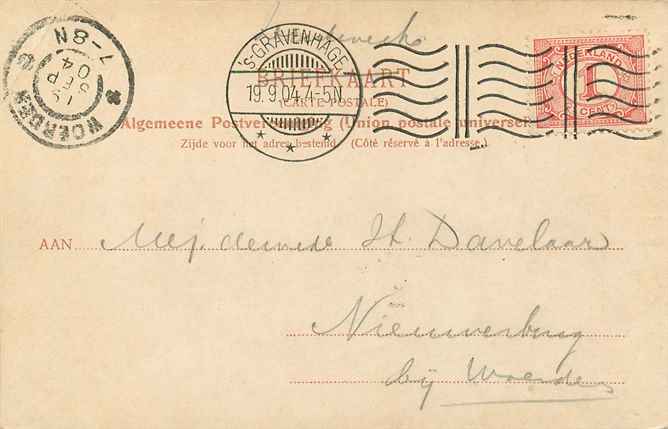 7-8N
SEP
04
WOERDEN
'S-GRAVENHAGE
19.9.04.7-5N
NEDERLAND
1
CENT
BRIEFKAART
(CARTE POSTALE)
Algemeene Postvereeniging (Union postale universelle)
Zijde voor het adres bestemd. (Côté réservé à l'adresse.)
AAN Mej. de wede H. Davelaar
Nieuwerbrug
bij Woerden